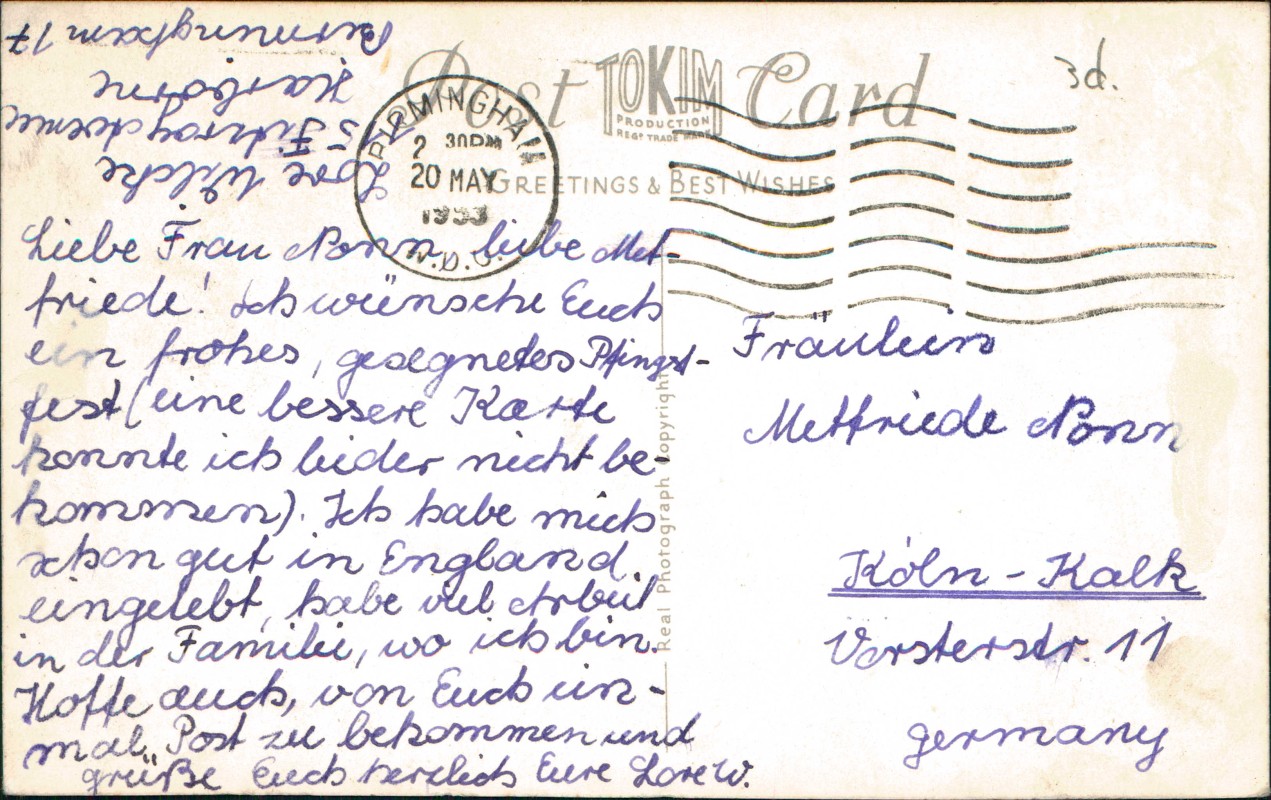 Post Card
TOKIM
PRODUCTION
REGD TRADE MARK
GREETINGS & BEST WISHES
3d.
BIRMINGHAM
2 30PM
20 MAY
1953
Lore Wilcke
5 Fitzroy Avenue
Harborne
Birmingham 17
Liebe Frau Nonn, liebe Met-
friede! Ich wünsche Euch
ein frohes, gesegnetes Pfingst-
fest (eine bessere Karte
konnte ich leider nicht be-
kommen). Ich habe mich
schon gut in England
eingelebt, habe viel Arbeit
in der Familie, wo ich bin.
Hoffe auch, von Euch ein-
mal Post zu bekommen und
grüße Euch herzlich Eure Lore W.
Real Photograph Copyright
Fräulein
Metfriede Nonn
Köln - Kalk
Vorsterstr. 11
Germany